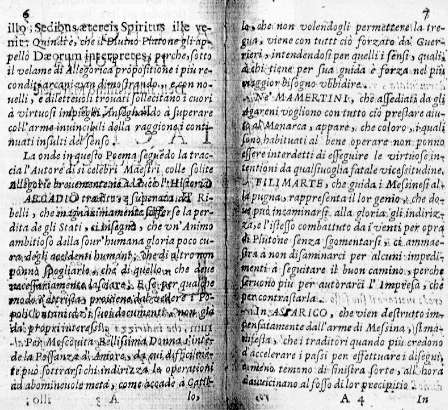 6
illo, Sedibus ætereis Spiritus ille ve
nit: Quindi è, che il Divino Platone gli ap
pellò Dæorum interpretes; perche, sotto
il velame di Allegorica propositione i piu re
conditi arcani van dimostrando, e con no
velli, e dilettevoli trovati sollecitano i cuori
à virtuosi impieghi, insegnando à superare
coll'arme invincibili della raggione i conti
nuati insulti del senso.
La onde in questo Poema seguèdo la trac
cia l'Autore di si celebri Maestri colle solite
Allegorie brevemente
ARCADIO tradito, e superato da Ri
belli, che magnanimamente sofferse la per
dita de gli Stati, ci insegna, che un'Animo
ambitioso della sour'humana gloria poco cu
ra degli accidenti humani, che di altro non
ponno spogliarlo, chà di quello, che deve
necessariamente lasciare, e se per qualche
modo l'attrista proviene dal vedere i Po
poli Contumaci a suoi documenti, non già
da propri interessi.
Per Moschita Bellissima Donna s'inten
de la Possanza d'Amore, da cui difficilmen
te può sottrarsi chi indirizza le operationi
ad abominevole meta, come accade à Catil
lo,
7
lo, che non volendogli permettere la tre
gua, viene con tutti ciò forzato da Guer
rieri, intendendosi per quelli i sensi, quali
a chi tiene per sua guida è forza nel più
maggior bisogno ubbidire.
Ne' MAMERTINI, che assediati da gli
Agareni vogliono con tutto ciò prestare aiu
to al Monarca, appare, che coloro, i quali
sono habituati al bene operare non ponno
essere interdetti di esseguire le virtuose in
tentioni da qualsivoglia fatale vicessitudine,
FILIMARTE, che guida i Messinesi al
la pugna, rappresenta il lor genio, che do
ve può incaminarsi alla gloria gli indiriz
za, e l'istesso combattuto da i venti per opra
di Plutone senza sgomentarsi, ci ammae
stra à non disaminarci per alcuni impedi
menti à seguitare il buon camino, perche
servono piu per autorarci l'Impresa, che
per contrastarla.
In ASPARICO, che vien destrutto im
pensatamente dall'arme di Messina, si ma
nifesta, che i traditori quando piu credono
d'accelerare i passi per effettuare i disegni,
o meno temono di sinistra sorte, all'hora
s'avvicinano al fosso di lor precipitio
A 4
In